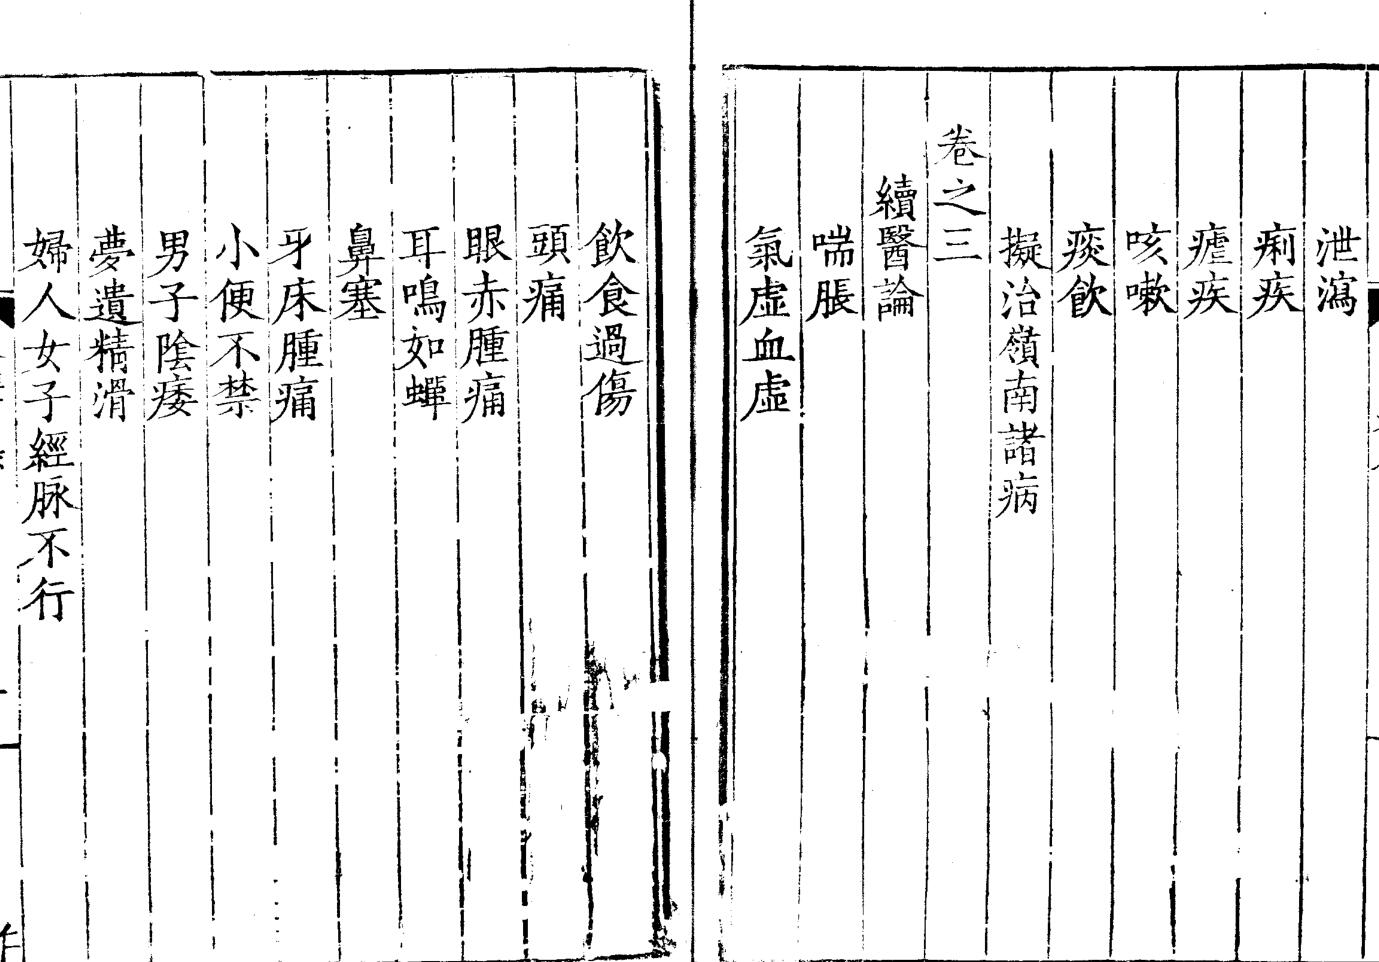 泄瀉
痢疾
瘧疾
咳嗽
痰飲
擬治嶺南諸病
卷之三
續醫論
喘脹
氣虛血虛
飲食過傷
頭痛
眼赤腫痛
耳鳴如蟬
鼻塞
牙床腫痛
小便不禁
男子陰痿
夢遺精滑
婦人女子經脉不行